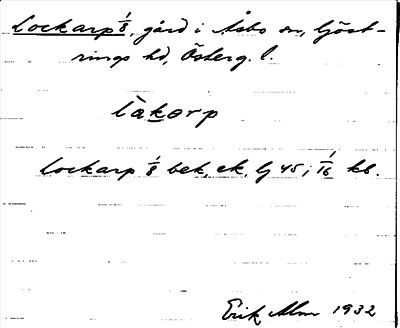 Lockarp 1/8, gård i Åsbo sn, Göst-
rings hd, Österg. l.
làkorp
Lockarp 1/8 bek, ek, lj 45; 1/16 kb.
Erik Alm 1932